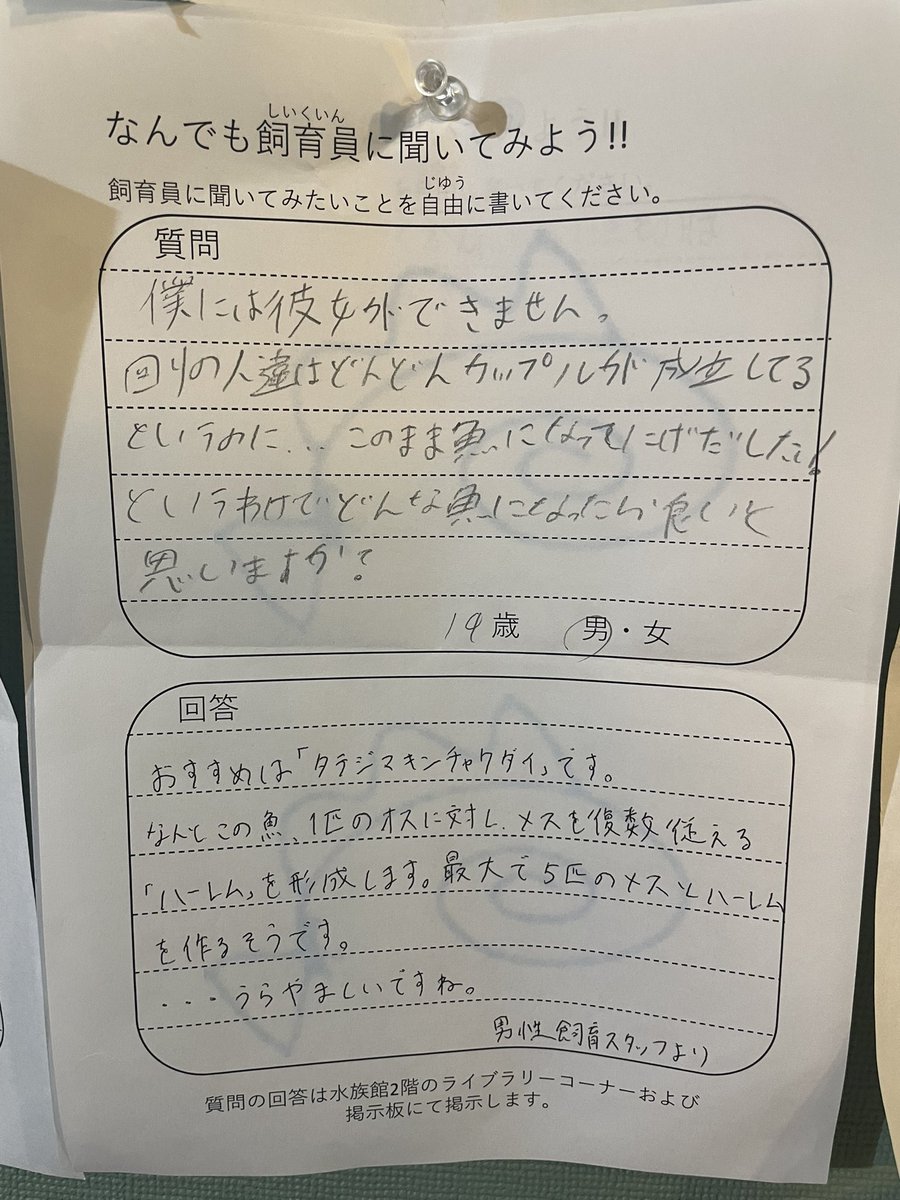 なんでも飼育員に聞いてみよう!!
しいくいん
飼育員に聞いてみたいことを自由に書いてください。
じゆう
質問
僕には彼女ができません。
回りの人達はどんどんカップルが成立してる
というのに...このまま魚になってにげだしたい!
というわけでどんな魚になったら良いと
思いますか?
19歳 男・女
回答
おすすめは「タテジマキンチャクダイ」です。
なんとこの魚、1匹のオスに対し、メスを複数従える
「ハーレム」を形成します。最大で5匹のメスとハーレム
を作るそうです。
・・・うらやましいですね。
男性飼育スタッフより
質問の回答は水族館2階のライブラリーコーナーおよび
掲示板にて掲示します。